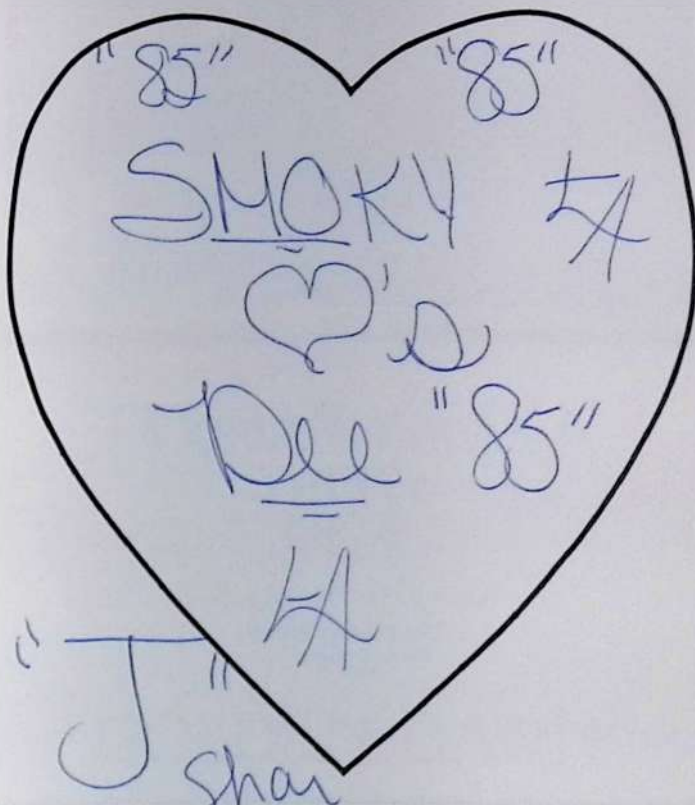 "85" "85"
SMOKY LA
♡'s
Dee "85"
LA
"J"
Shai